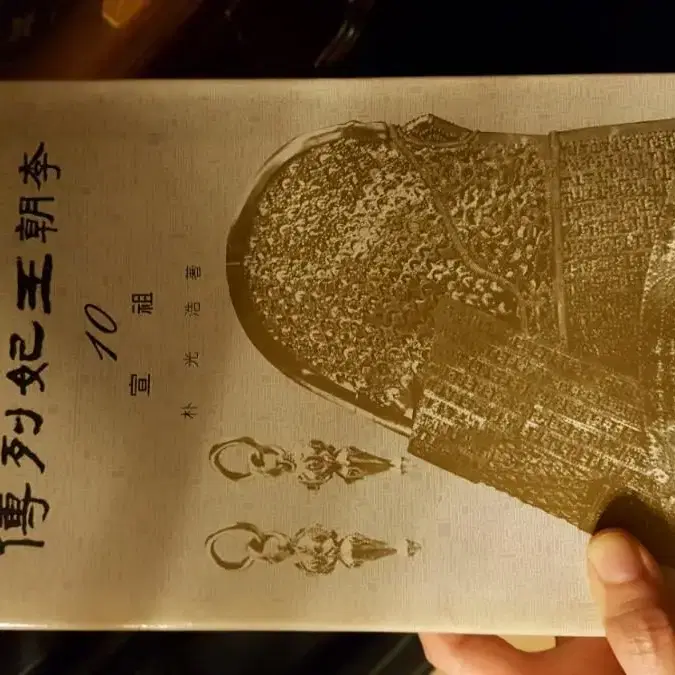 李朝王妃列傳
10
宣祖
朴光浩著